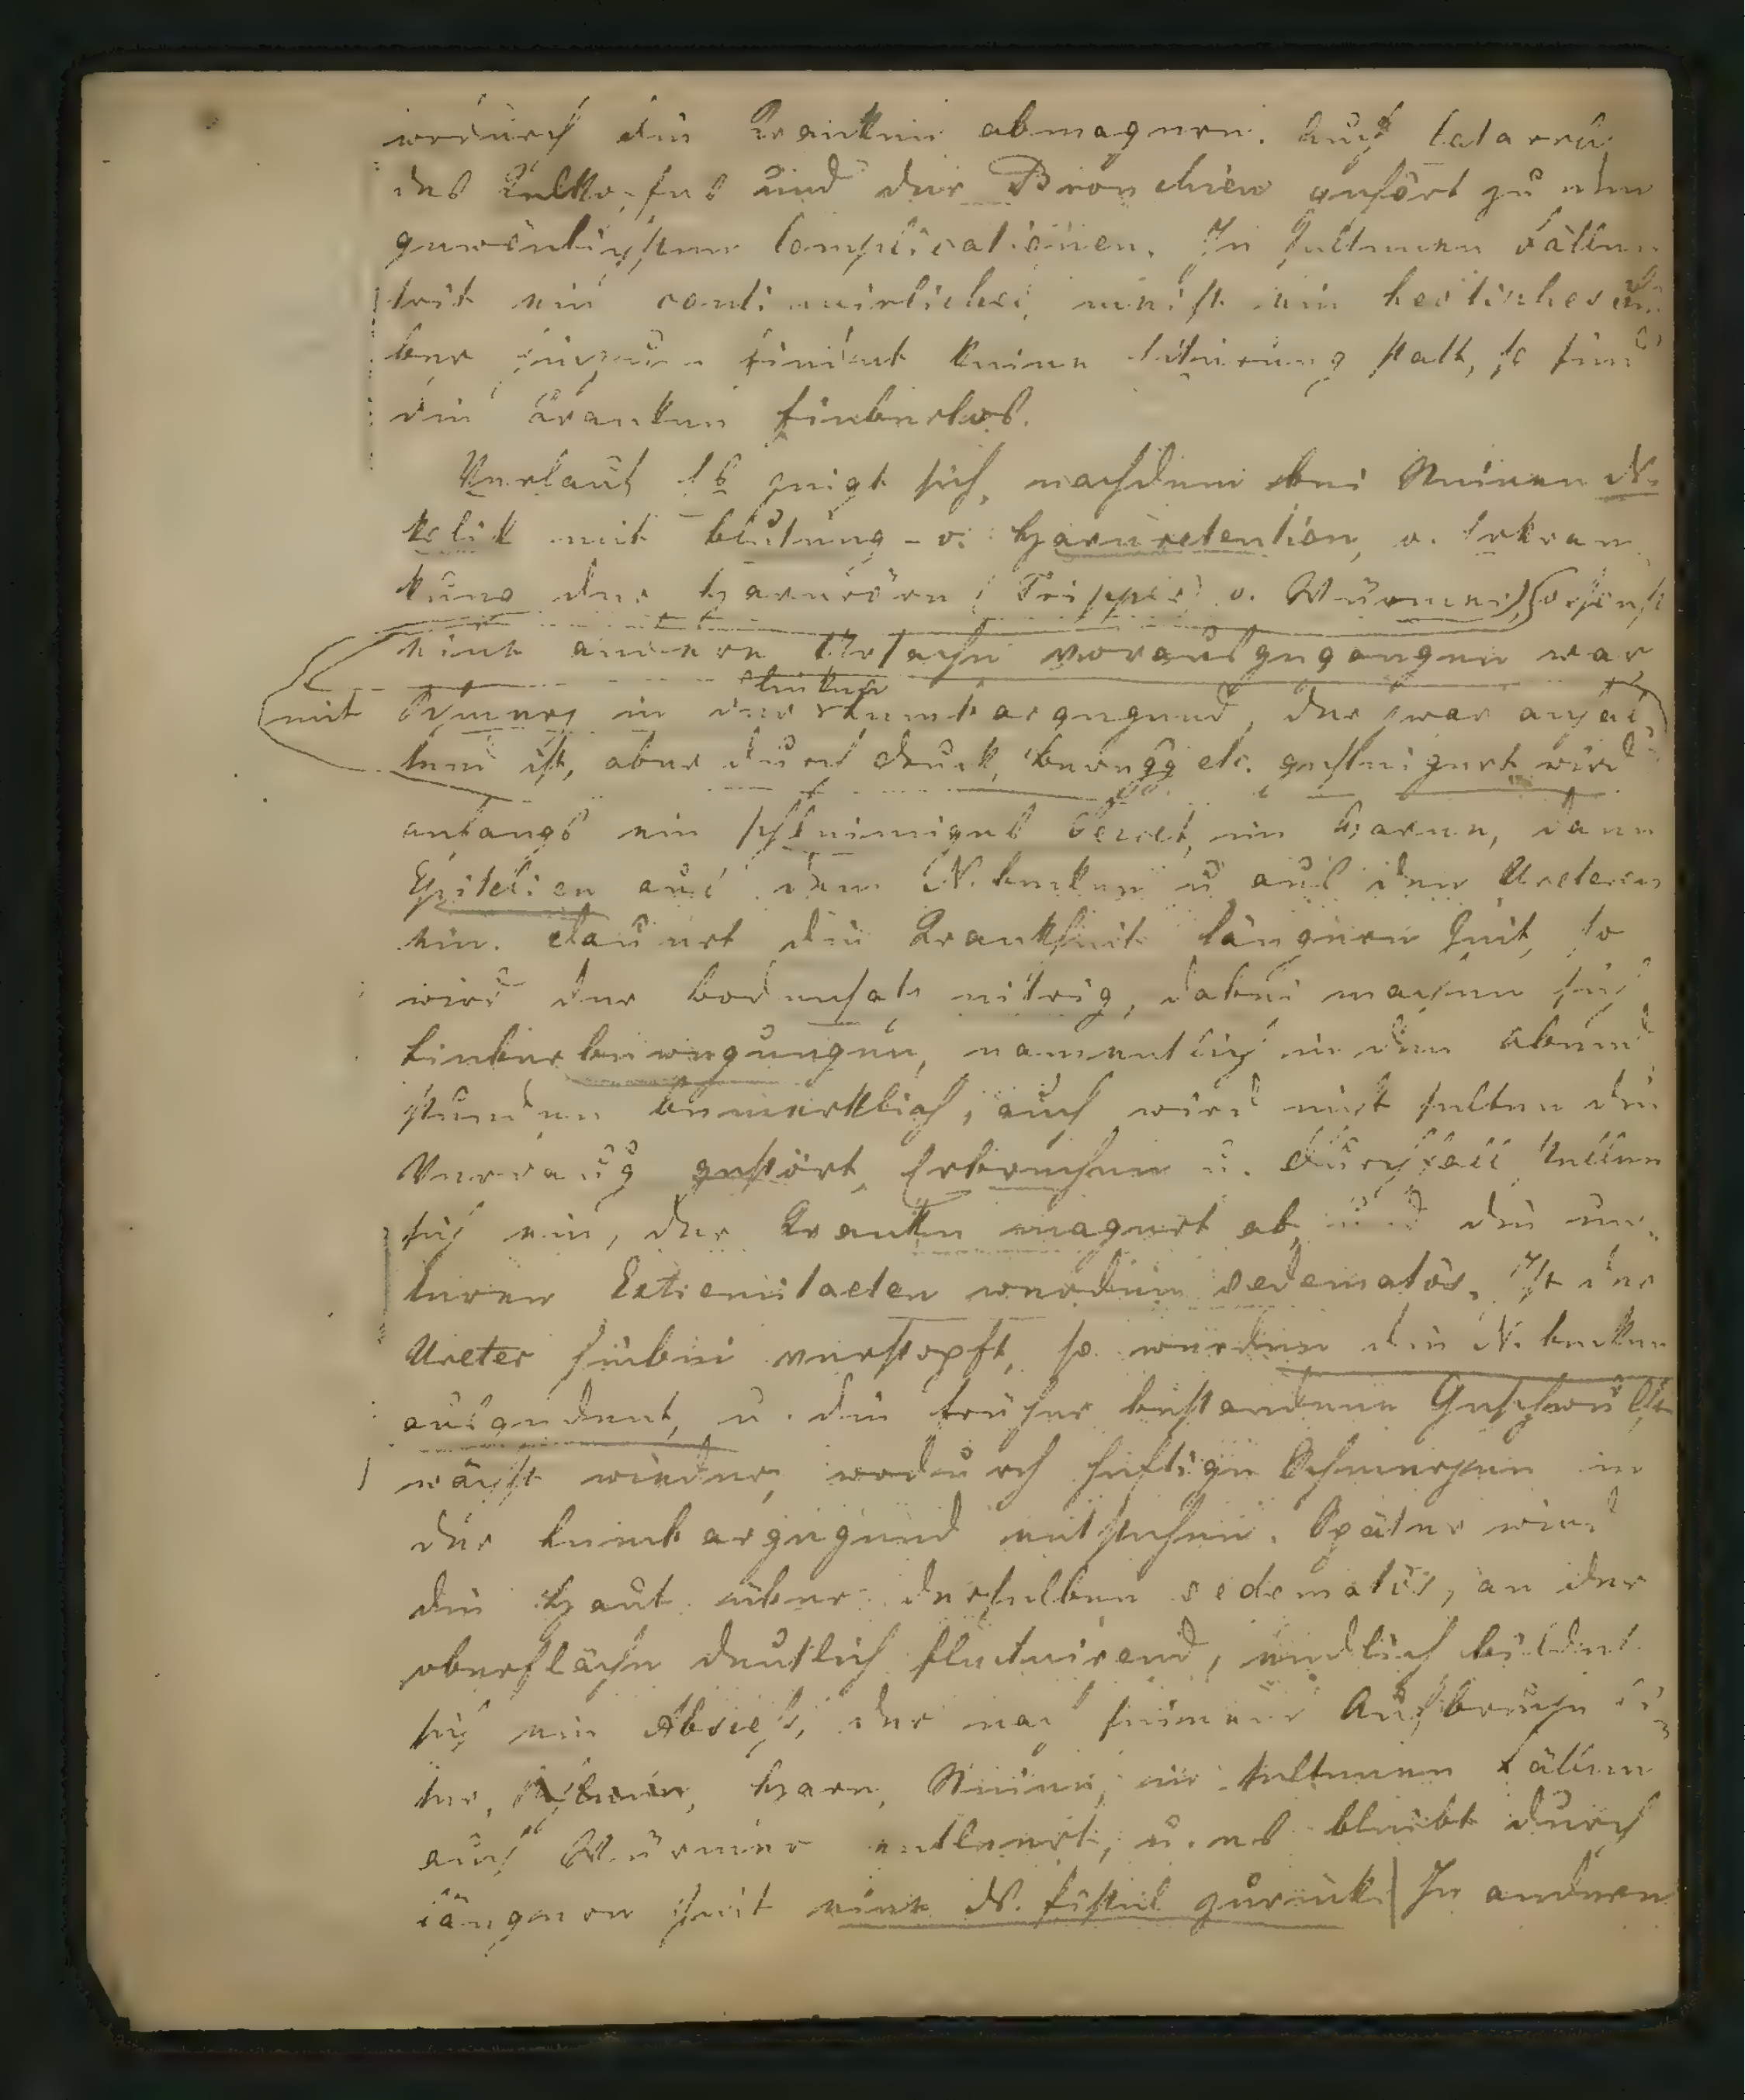 wodurch die Kranken abmagern. Auch Catarrh
des Kehlkopfes und der Bronchien gehört zu den
gewönlichsten Complicationen. In seltenen Fällen
trit ein continuirliches, meist ein hectisches Fie
ber hinzu findet keine Eiterung statt, so sind
die Kranken fieberlos.
Verlauf Es zeigt sich, nachdem bei Steinen N.
kolik mit blutung - o. Harnretention, o. Erkran
kung der Harnrören (Tripper) o. Würmer) (o. sonst
eine andere Ursache vorausgegangen war
mit Schmerz in der starker Lumbargegend, der zwar anhal
tend ist, aber durch druck, bewegg etc. gesteigert wird
anfangs ein schleimiges Secret, im Harne, dann
Epitelien aus dem N. becken u aus den Ureteren
ein. dauert die Krankheit längere Zeit, so
wird der bodensatz eitrig, dabei machen sich
Fieberbewegungen, namentlich in den abend
stunden bemerklich, auch wird nicht selten die
Verdaug gestört, Erbrechen u. Durchfall stellen
sich ein, der Kranke magert ab, und die un
teren Extremitaeten werden oedematös. Ist der
Ureter hiebei verstopft, so werden die N. becken
ausgedent, u. die früher bestandene Geschwulst
wächst wieder, wodurch heftige Schmerzen in
der Lumbargegend entstehen. Später wird
die Haut über derselben oedematös, an der
oberfläche deutlich fluctuirend, endlich bildet
sich ein Abscess, der nach seinem Aufbruche Ei
ter, Harn, Steine, in seltenen Fällen
auch Würmer entleert, u. es bleibt durch
längere Zeit eine N. fistel zurück| In anderen